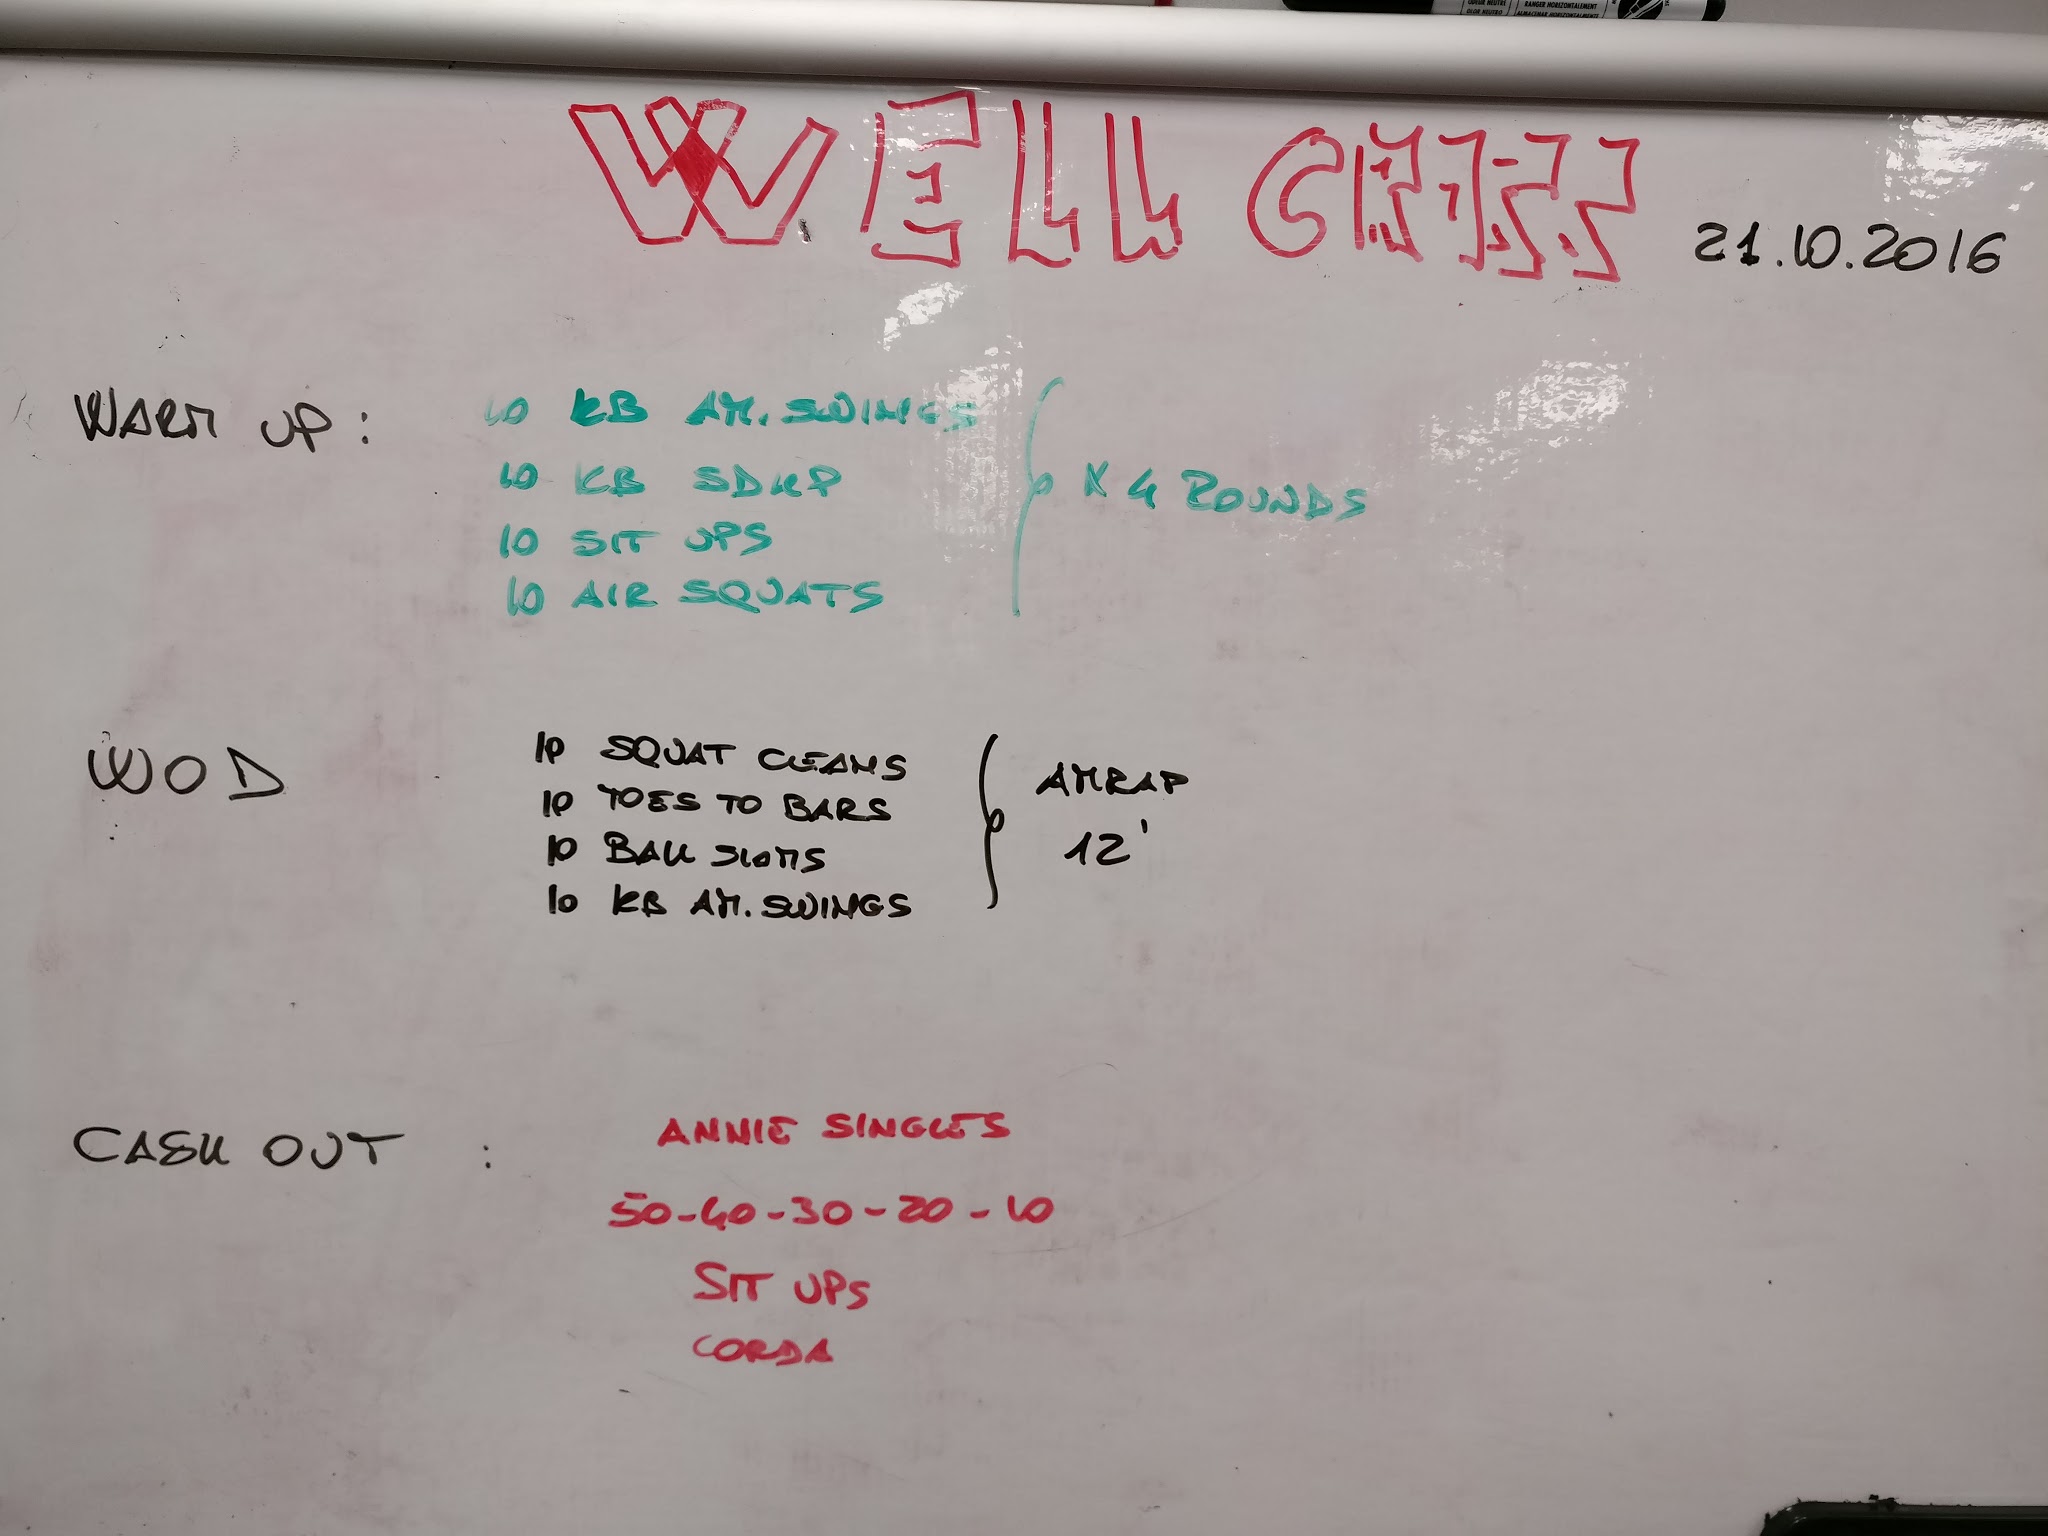 ODEUR NEUTRE
OLOR NEUTRO
RANGER HORIZONTALEMENT
ALMACENAR HORIZONTALMENTE
WELL CROSS 21.10.2016
WARM UP:
10 KB AM. SWINGS
10 KB SDHP
10 SIT UPS
10 AIR SQUATS
X 4 ROUNDS
WOD
10 SQUAT CLEANS
10 TOES TO BARS
10 BALL SLAMS
10 KB AM. SWINGS
AMRAP
12'
CASH OUT :
ANNIE SINGLES
50-40-30-20-10
SIT UPS
CORDA